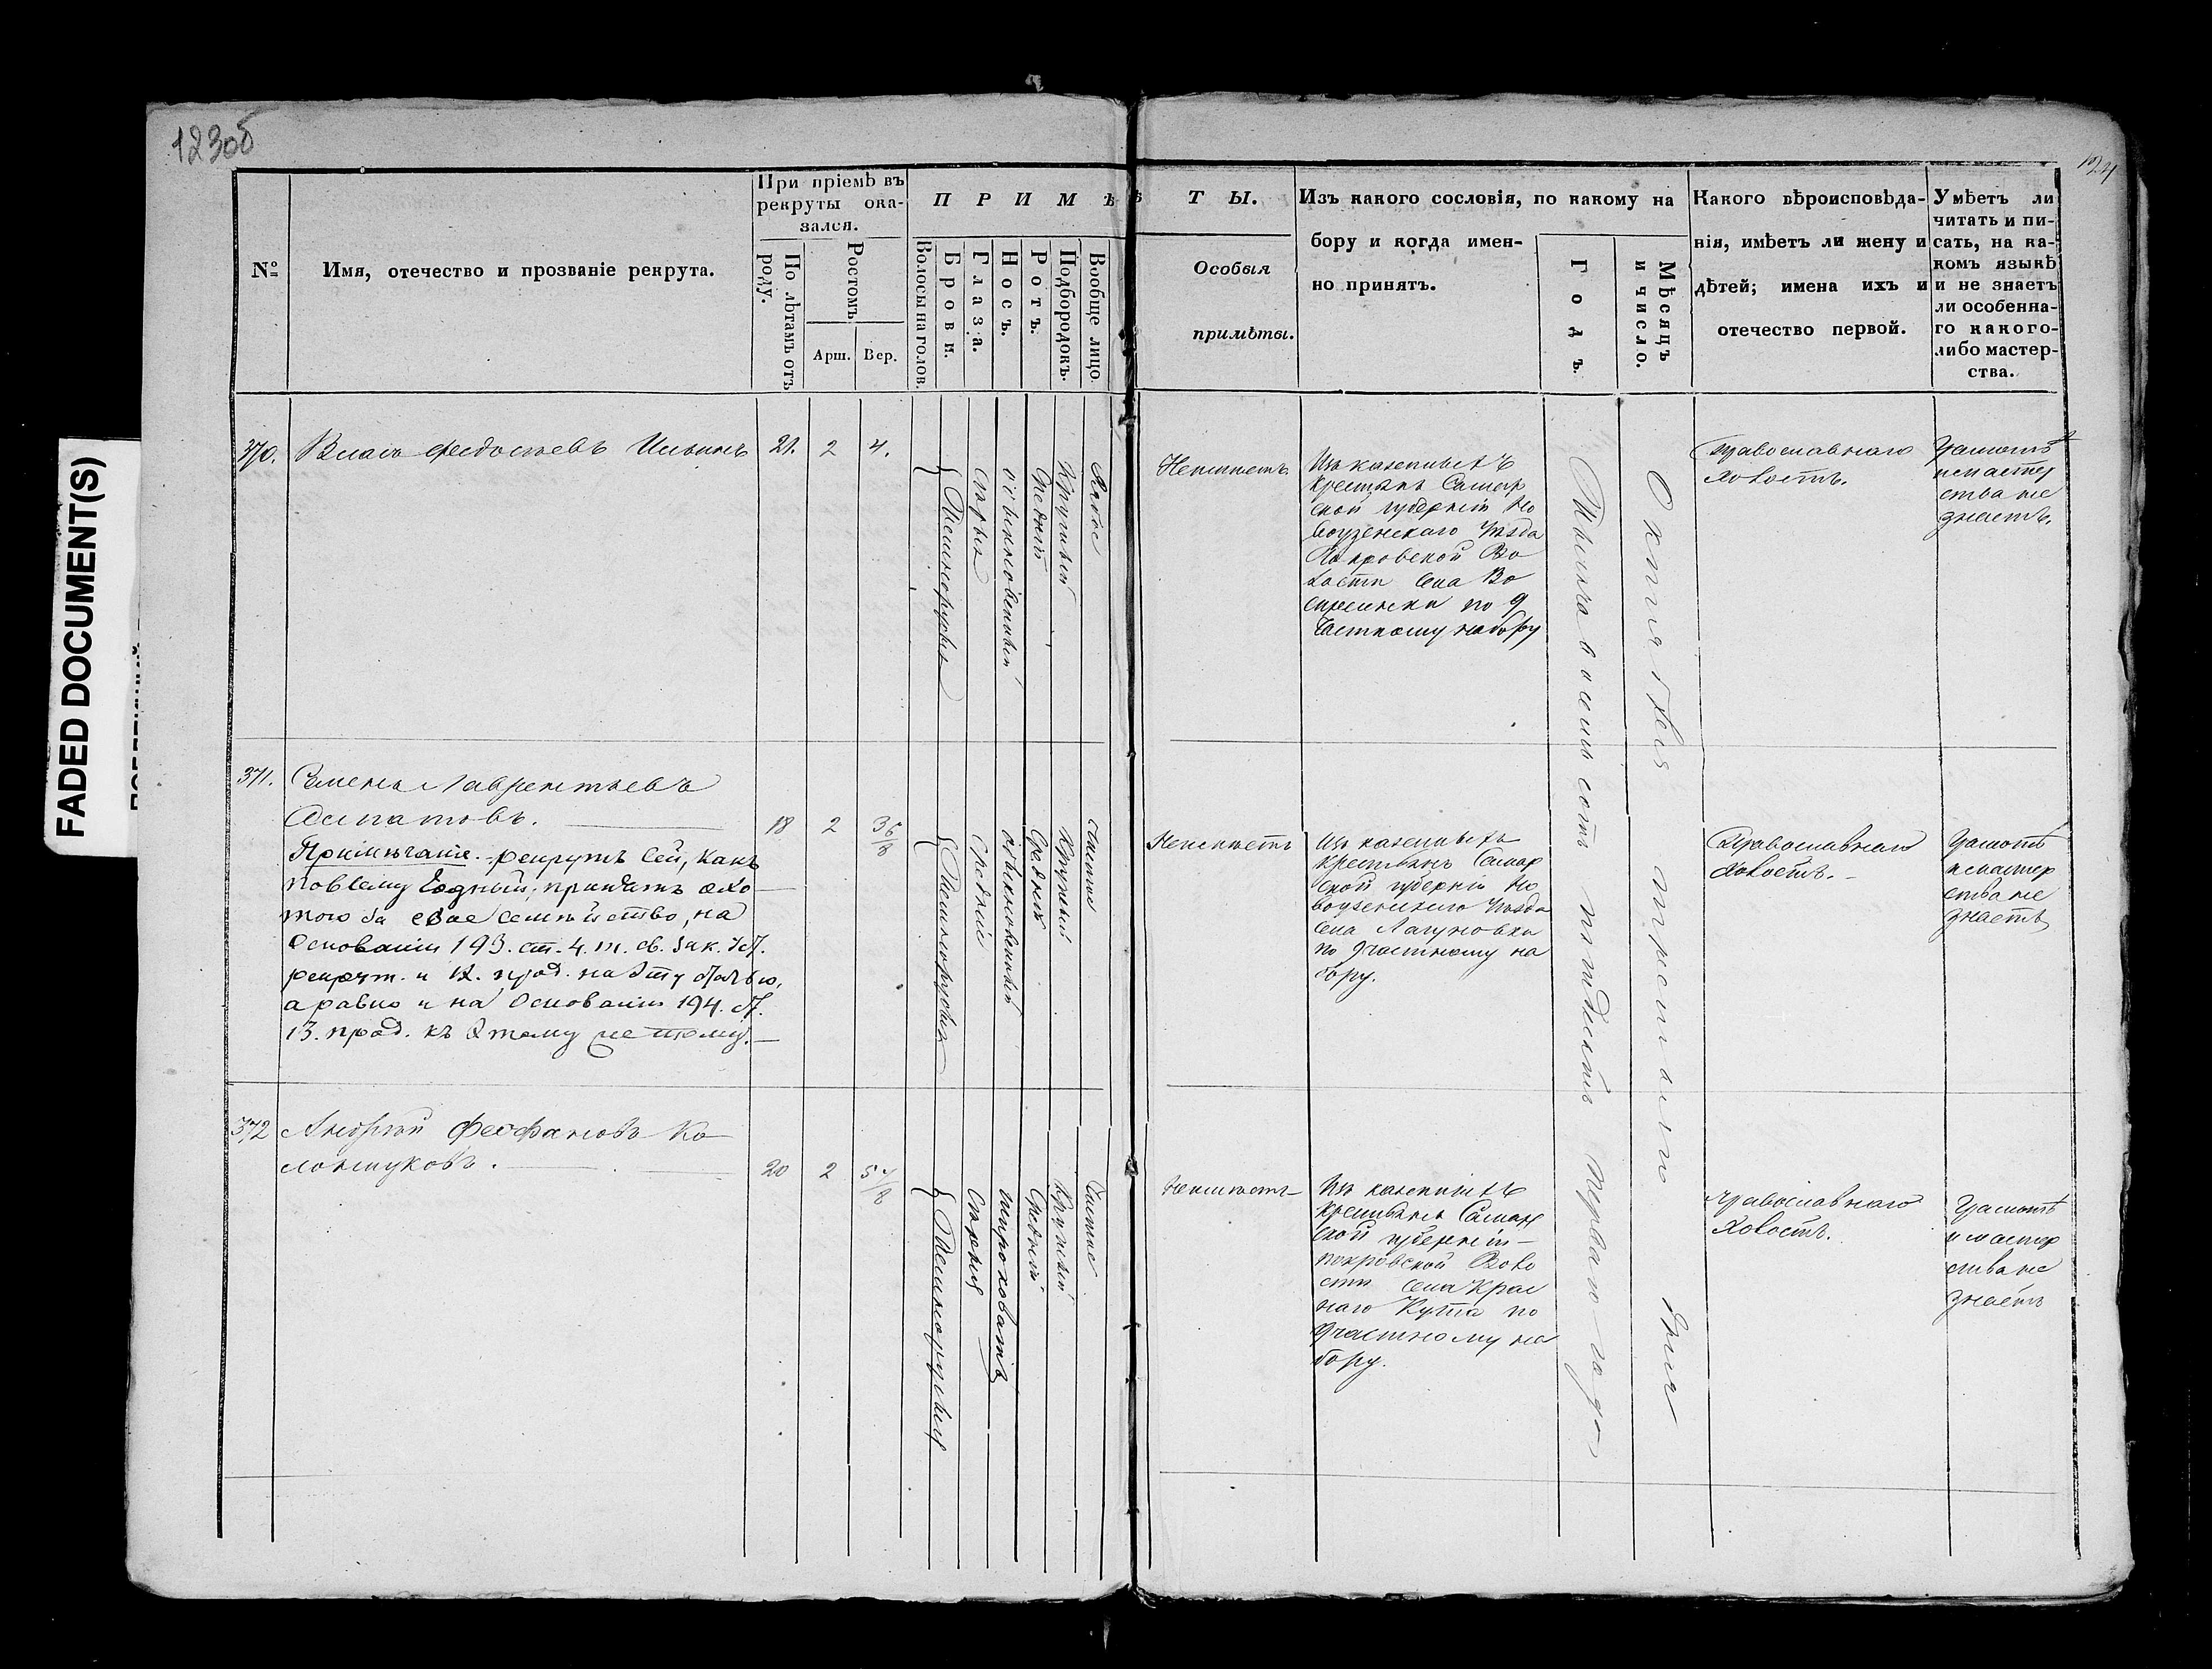 123об
124
FADED DOCUMENT(S)
№
Имя, отечество и прозваніе рекрута.
При пріемѣ въ
рекруты ока-
зался.
По лѣтамъ отъ
роду.
Ростомъ
Арш.
Вер.
П Р И М Ѣ
Волосы на голов.
Брови.
Глаза.
Носъ.
Ротъ.
Подбородокъ.
Вообще лицо.
Т Ы.
Особыя
примѣты.
Изъ какого сословія, по какому на
бору и когда имен-
но принятъ.
Годъ.
Мѣсяцъ
и число.
Какого вѣроисповѣда-
нія, имѣетъ ли жену и
дѣтей; имена ихъ и
отечество первой.
Умѣетъ ли
читать и пи-
сать, на ка-
комъ языкѣ
и не знаетъ
ли особенна-
го какого-
либо мастер-
ства.
370.
Власъ Федосѣевъ Ильинъ
21.
2
4.
Темнорусыя
Сѣрыя
обыкновенный
Средній
Круглый
Неимѣетъ
Изъ казенныхъ
крестьянъ Самар
ской губерніи Но
воузенскаго Уѣзда
Покровской Во
лости села Во
скресенки по 9
частному набору
Православнаго
Холостъ.
Грамотѣ
и мастер
ства не
знаетъ.
371.
Семенъ Лаврентьевъ
Осипатовъ.
Примѣчаніе. рекрутъ сей, какъ
повсему годный, принятъ охо
тою за свое семѣйство, на
Основаніи 193. ст. 4. т. св. Зак. Уст.
рекрут. и 12. прод. на эту статью,
а равно и на Основаніи 194. ст.
13. прод. къ этому же тому.
18
2
3 5/8
Темнорусыя
Средніе
обыкновенный
Средній
Круглый
Чистое
Неимѣетъ
Изъ казенныхъ
крестьянъ Самар
ской губерніи Но
воузенскаго Уѣзда
села
по 9 частному на
бору.
Православнаго
Холостъ.
Грамотѣ
и мастер
ства не
знаетъ
372
Андрей Феофановъ Ко
20
2
5 4/8
Темнорусыя
Сѣрыя
широковатъ
Средній
Круглый
Чистое
Неимѣетъ
Изъ казенныхъ
крестьянъ Самар
ской губерніи
Покровской Воло
сти села Крас
наго Кута по
9 частному на
бору.
Тысяча восемьсотъ пятьдесятъ перваго года
Октября тридцатаго дня
Православнаго
Холостъ.
Грамотѣ
и мастер
ства не
знаетъ